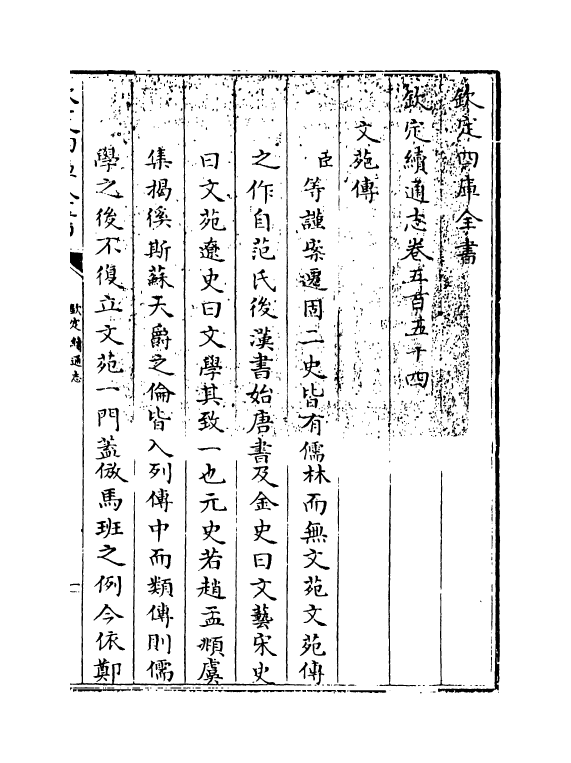 欽定四庫全書
欽定續通志卷五百五十四
文苑傳
臣等謹案遷固二史皆有儒林而無文苑文苑傳
之作自范氏後漢書始唐書及金史曰文藝宋史
曰文苑遼史曰文學其致一也元史若趙孟頫虞
集揭徯斯蘇天爵之倫皆入列傳中而類傳則儒
學之後不復立文苑一門蓋倣馬班之例今依鄭
欽定續通志
一